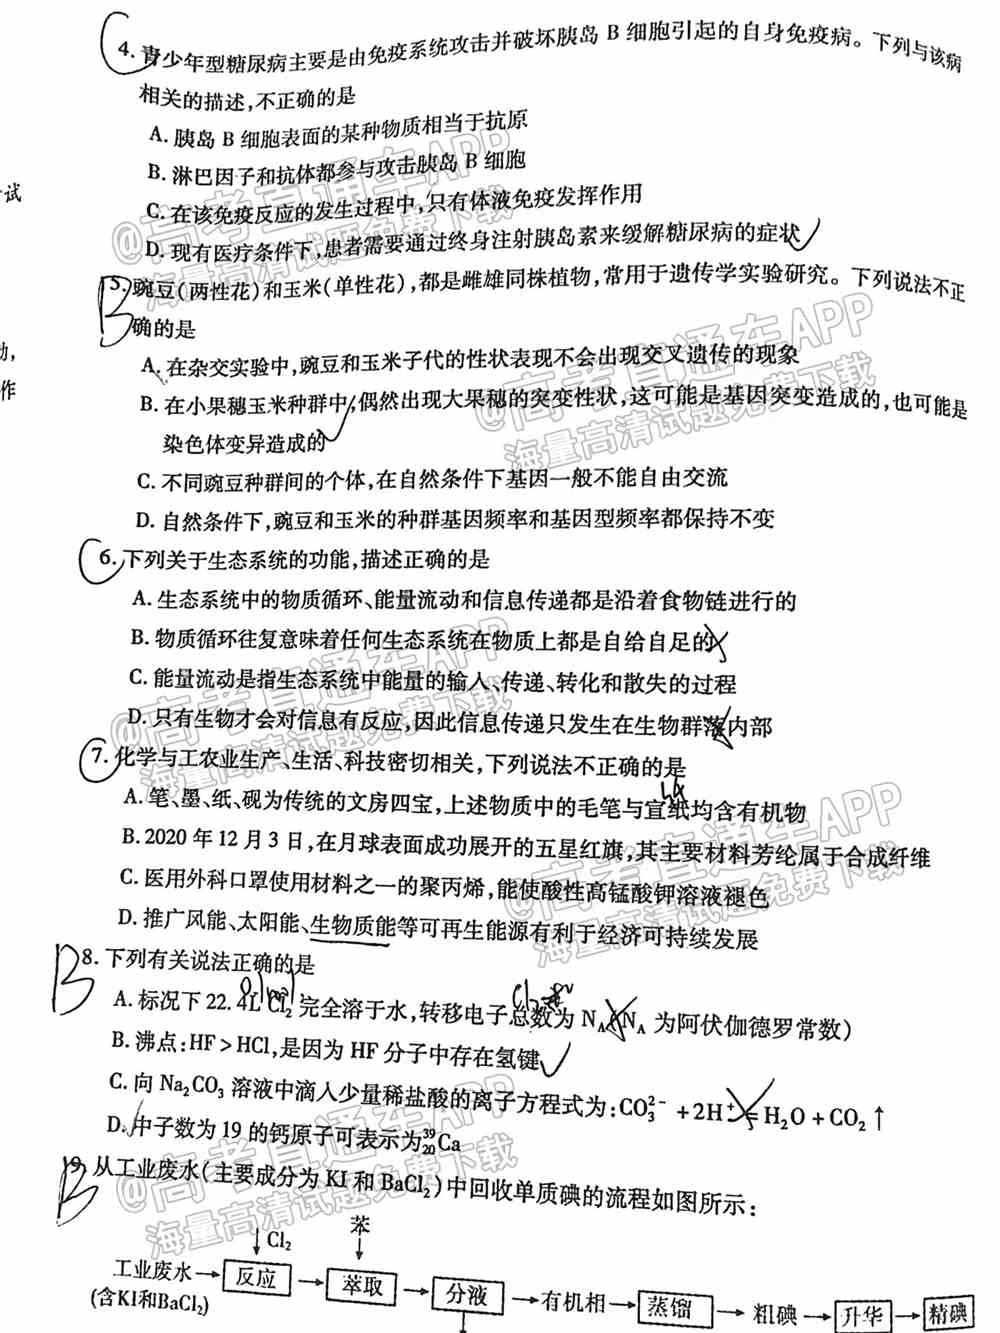 4. 青少年型糖尿病主要是由免疫系统攻击并破坏胰岛 B 细胞引起的自身免疫病。下列与该病
相关的描述,不正确的是
A. 胰岛 B 细胞表面的某种物质相当于抗原
B. 淋巴因子和抗体都参与攻击胰岛 B 细胞
试
C. 在该免疫反应的发生过程中,只有体液免疫发挥作用
D. 现有医疗条件下,患者需要通过终身注射胰岛素来缓解糖尿病的症状
@高考直通车APP
海量高清试题免费下载
B
5. 豌豆(两性花)和玉米(单性花),都是雌雄同株植物,常用于遗传学实验研究。下列说法不正
确的是
A. 在杂交实验中,豌豆和玉米子代的性状表现不会出现交叉遗传的现象
作
B. 在小果穗玉米种群中,偶然出现大果穗的突变性状,这可能是基因突变造成的,也可能是
染色体变异造成的
@高考直通车APP
海量高清试题免费下载
C. 不同豌豆种群间的个体,在自然条件下基因一般不能自由交流
D. 自然条件下,豌豆和玉米的种群基因频率和基因型频率都保持不变
6. 下列关于生态系统的功能,描述正确的是
A. 生态系统中的物质循环、能量流动和信息传递都是沿着食物链进行的
B. 物质循环往复意味着任何生态系统在物质上都是自给自足的
C. 能量流动是指生态系统中能量的输入、传递、转化和散失的过程
D. 只有生物才会对信息有反应,因此信息传递只发生在生物群落内部
@高考直通车APP
海量高清试题免费下载
7. 化学与工农业生产、生活、科技密切相关,下列说法不正确的是
A. 笔、墨、纸、砚为传统的文房四宝,上述物质中的毛笔与宣纸均含有机物
B. 2020 年 12 月 3 日,在月球表面成功展开的五星红旗,其主要材料芳纶属于合成纤维
C. 医用外科口罩使用材料之一的聚丙烯,能使酸性高锰酸钾溶液褪色
D. 推广风能、太阳能、生物质能等可再生能源有利于经济可持续发展
@高考直通车APP
海量高清试题免费下载
B
8. 下列有关说法正确的是
A. 标况下 22.4L Cl₂ 完全溶于水,转移电子总数为 N_A(N_A 为阿伏伽德罗常数)
B. 沸点:HF>HCl,是因为 HF 分子中存在氢键
C. 向 Na₂CO₃ 溶液中滴入少量稀盐酸的离子方程式为:CO₃²⁻ +2H⁺=H₂O+CO₂↑
D. 中子数为 19 的钙原子可表示为³⁹₂₀Ca
@高考直通车APP
海量高清试题免费下载
B
9. 从工业废水(主要成分为 KI 和 BaCl₂)中回收单质碘的流程如图所示:
Cl₂ 苯
工业废水 → 反应 → 萃取 → 分液 → 有机相 → 蒸馏 → 粗碘 → 升华 → 精碘
(含KI和BaCl₂)